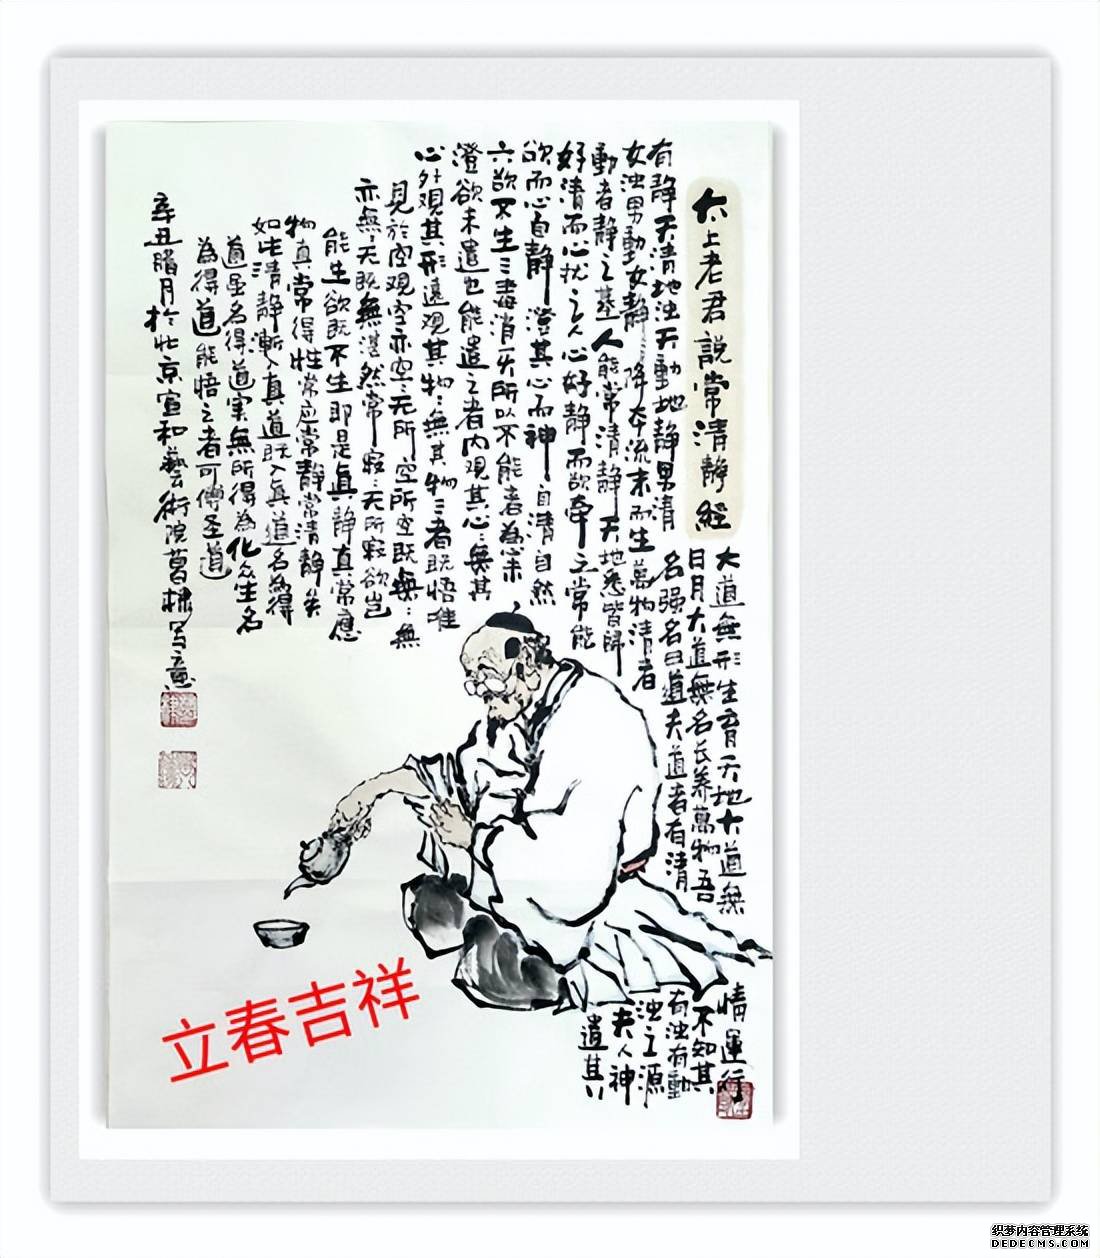 太上老君說常清静經
大道無形生育天地大道無
情運行
日月大道無名長养萬物吾
不知其
名强名曰道夫道者有清
有浊有動
有静天清地浊天動地静男清
女浊男動女静〻降本流末而生萬物清者
浊之源
動者静之基人能常清静天地悉皆歸
夫人神
好清而心扰之人心好静而欲牵之常能
遣其
欲而心自静澄其心而神自清自然
六欲不生三毒消灭所以不能者為心未
澄欲未遣也能遣之者内观其心〻無其
心外观其形遠观其物〻無其物三者既悟唯
見於空观空亦空〻无所空所空既無〻無
亦無〻无既無湛然常寂〻无所寂欲岂
能生欲既不生即是真静真常應
物真常得性常应常静常清静矣
如此清静漸入真道既入真道名為得
道虽名得道实無所得為化众生名
為得道能悟之者可傳圣道
辛丑腊月於北京宣和藝術院葛棣写意
立春吉祥
织梦内容管理系统
DEDECMS.COM